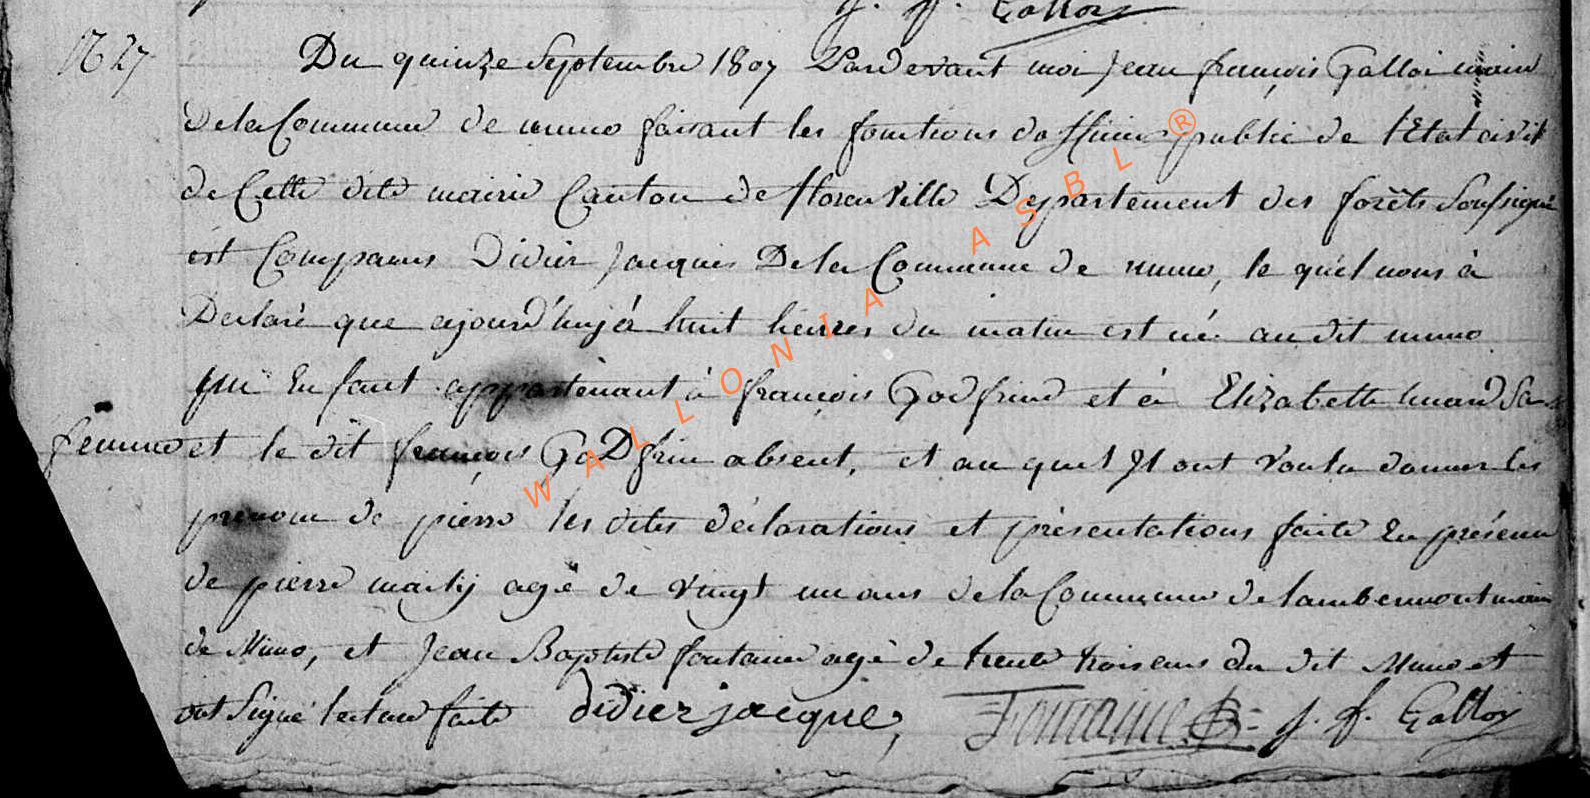 J. f. Galloy
N.º 27
Du quinze Septembre 1807 Pardevant moi Jean françois Galloi maire
De la Commune de muno faisant les fonctions dofficier public de l'Etat civil
de Cette dite mairie Canton de florenville Departement des forêts Soussigné
est Comparus Didier Jacques De la Commune de muno, le quel nous à
Declaré que ajourd'huj à huit heures du matin est né au dit muno
un Enfant appartenant à françois Godfrind et à Elizabette huard Sa
femme et le dit françois GoDfrin absent, et au quel Il ont voulu donner les
prenom de pierre les dites déclarations et présentations faite En présence
de pierre agé de vingt un ans de la Commune de lambermont mairie
de Muno, et Jean Baptiste fontaine agé de trente trois ans du dit Muno et
ont Signé lecture faite didier jacque, Fontaine JB J. f. Galloy
WALLONIA ASBL ®